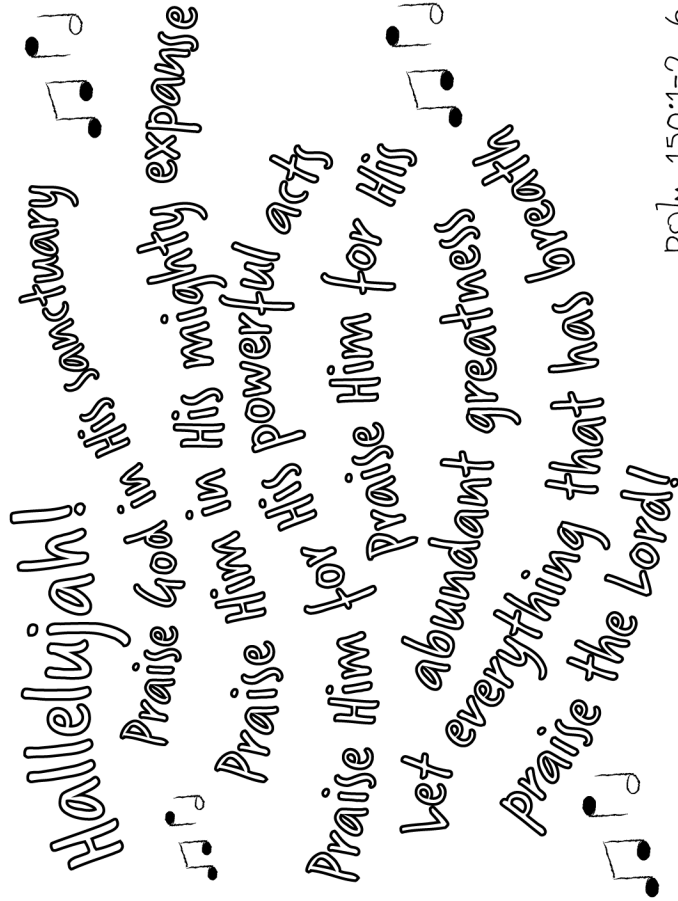 Hallelujah!
Praise God in His sanctuary
Praise Him in His mighty expanse
Praise Him for His powerful acts
Praise Him for His
abundant greatness
Let everything that has breath
praise the Lord!
150:1-2, 6